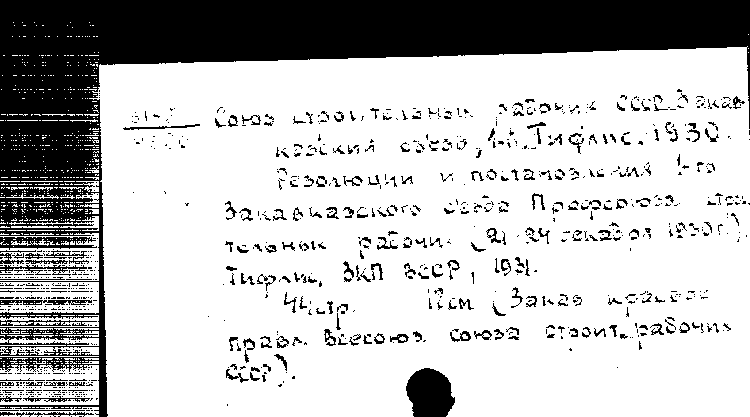 Союз строительных рабочих СССР. Закав
казский съезд, 1-й. Тифлис. 1930.
Резолюции и постановления 1-го
Закавказского съезда Профсоюза строи
тельных рабочих (21-24 декабря 1930 г.).
Тифлис, ЗКП ЗССР, 1931.
44 стр. 12 см (Закав краевое
правл. Всесоюз. союза строит. рабочих
СССР).